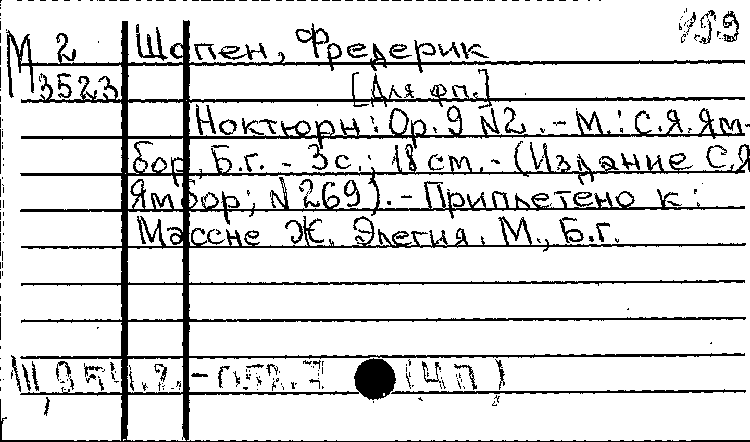 М 2 Шопен, Фредерик 499
3523 [Для фп.]
Ноктюрн: Op. 9 N2. - М.: С.Я. Ям-
бор, Б.г. - 3с.; 18 см. - (Издание С.Я
Ямбор; N 269). - Приплетено к:
Массне Ж. Элегия. М., Б.г.
Щ954.2-052.7 (4П)